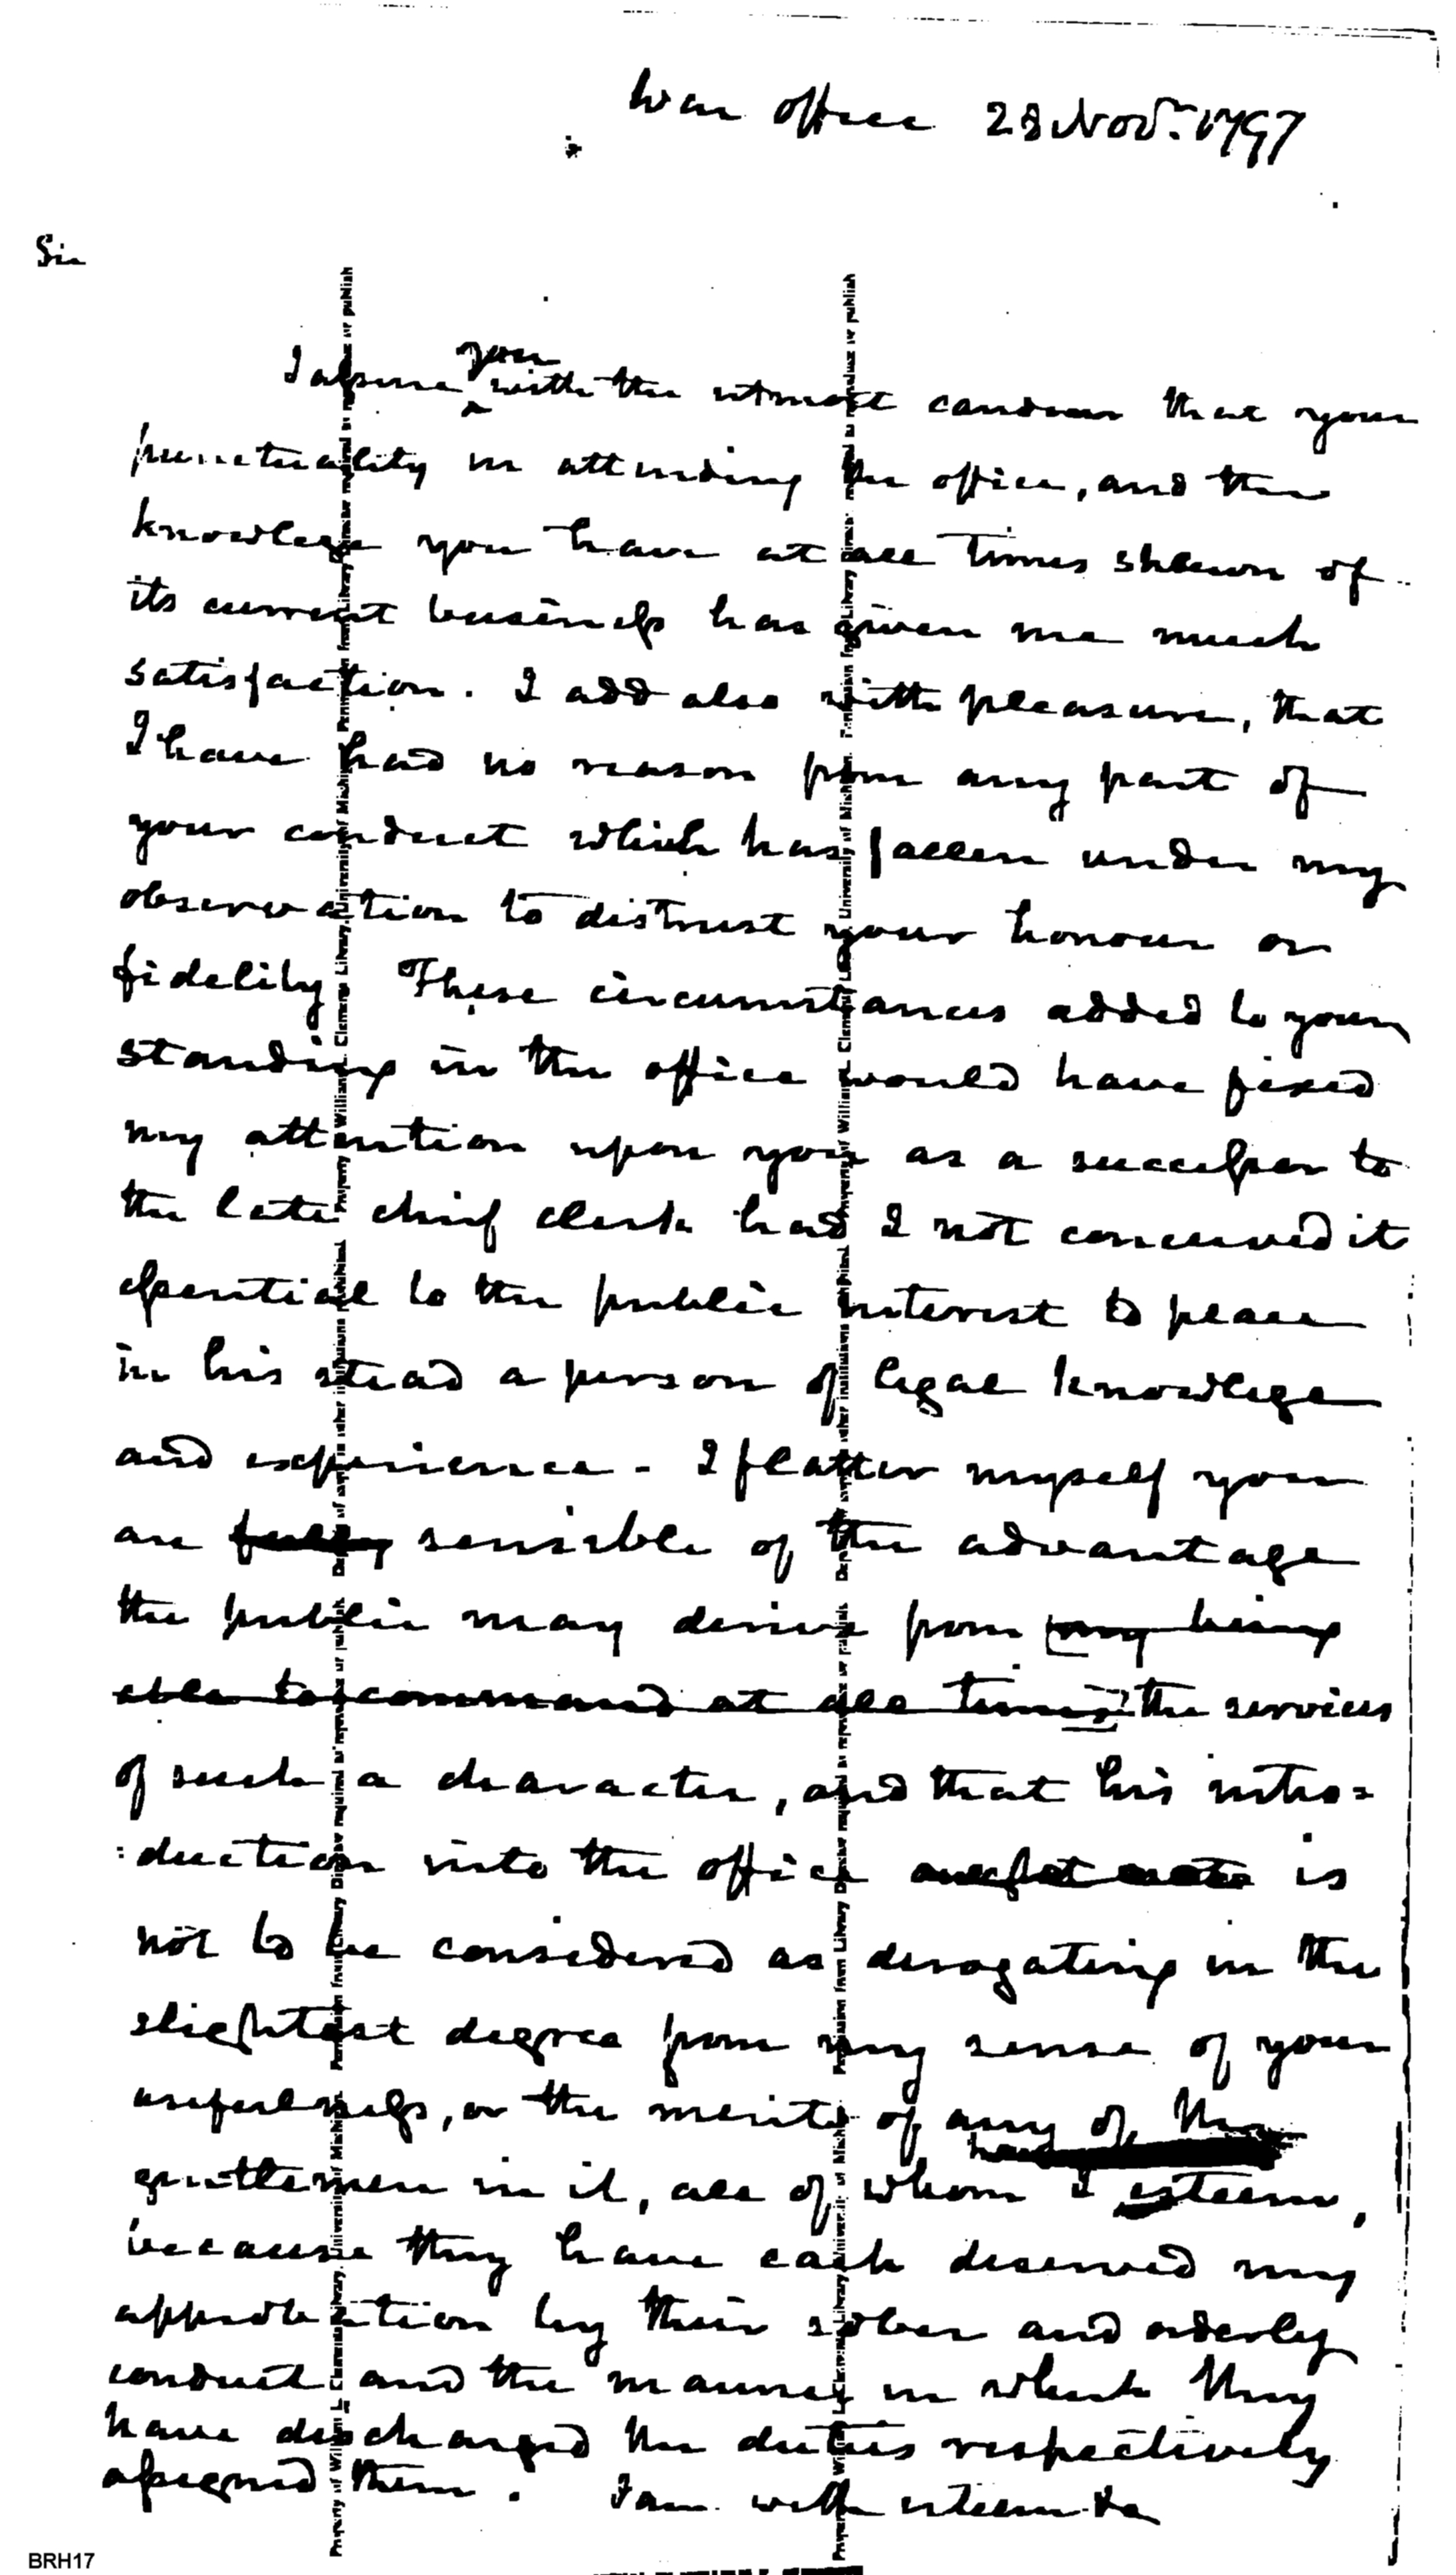 War office 28 Novr. 1797
Sir
I assure you with the utmost candour that your
punctuality in attending the office, and the
knowlege you have at all times shewn of
its current business has given me much
satisfaction. I add also with pleasure, that
I have had no reason from any part of
your conduct which has fallen under my
observation to distrust your honour or
fidelity. These circumstances added to your
standing in the office would have fixed
my attention upon you as a successor to
the late chief clerk had I not conceived it
essential to the public interest to place
in his stead a person of legal knowlege
and experience - I flatter myself you
are fully sensible of the advantage
the public may derive from my being
able to command at all times the services
of such a character, and that his intro=
:duction into the office is
not to be considered as derogating in the
slightest degree from my sense of your
usefulness, or the merits of any of the
gentlemen in it, all of whom I esteem,
because they have each deserved my
approbation by their sober and orderly
conduct and the manner in which they
have discharged the duties respectively
assigned them. I am with esteem &a
Property of William L. Clements Library, University of Michigan. Permission from Library Director required to reproduce or publish
BRH17